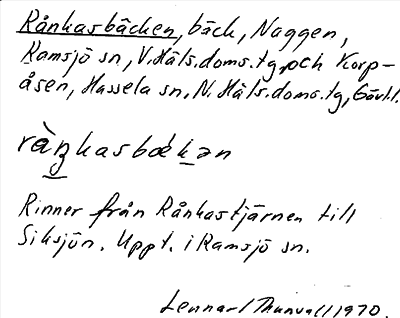 Rånkasbäcken, bäck, Naggen,
Ramsjö sn, V. Häls. doms. tg, och Korp-
åsen, Hassela sn, N. Häls. doms. tg, Gävl.l.
ràŋkasbækən
Rinner från Rånkastjärnen till
Siksjön. Uppt. i Ramsjö sn.
Lennart Thunvall 1970.